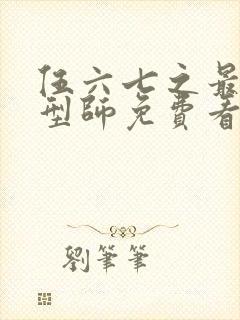 伍六七之最
型師免費看
劉筆筆